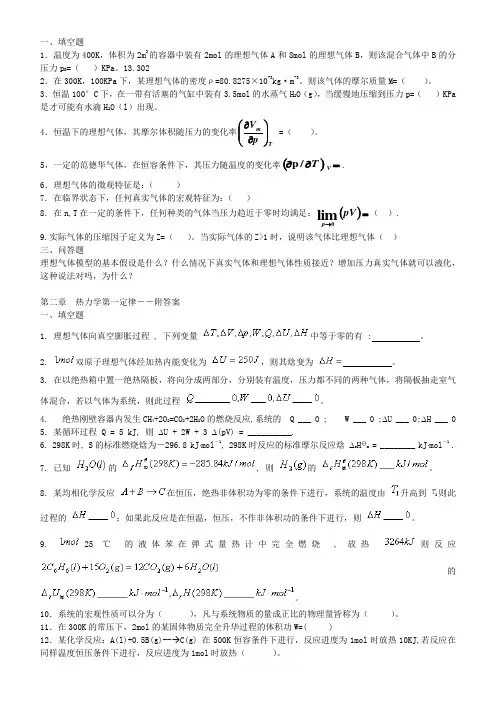 一、填空题
1.温度为400K,体积为2m³的容器中装有2mol的理想气体A和8mol的理想气体B,则该混合气体中B的分
压力pB=( )KPa。13.302
2.在300K,100KPa下,某理想气体的密度ρ=80.8275×10⁻³kg·m⁻³。则该气体的摩尔质量M=( )。
3.恒温100°C下,在一带有活塞的气缸中装有3.5mol的水蒸气H₂O(g),当缓慢地压缩到压力p=( )KPa
是才可能有水滴H₂O(l)出现。
4.恒温下的理想气体,其摩尔体积随压力的变化率(∂Vm/∂p)T =( )。
5,一定的范德华气体,在恒容条件下,其压力随温度的变化率(∂p/∂T)V=.
6.理想气体的微观特征是:( )
7. 在临界状态下,任何真实气体的宏观特征为:( )
8. 在n,T在一定的条件下,任何种类的气体当压力趋近于零时均满足:lim p→0 (pV)=( ).
9.实际气体的压缩因子定义为Z=( )。当实际气体的Z>1时,说明该气体比理想气体( )
三、问答题
理想气体模型的基本假设是什么?什么情况下真实气体和理想气体性质接近?增加压力真实气体就可以液化,
这种说法对吗,为什么?
第二章 热力学第一定律--附答案
一、填空题
1. 理想气体向真空膨胀过程 , 下列变量 ΔT,ΔV,Δp,W,Q,ΔU,ΔH 中等于零的有 : 。
2. 1mol 双原子理想气体经加热内能变化为 ΔU=250J ,则其焓变为 ΔH= 。
3. 在以绝热箱中置一绝热隔板,将向分成两部分,分别装有温度,压力都不同的两种气体,将隔板抽走室气
体混合,若以气体为系统,则此过程 Q____0,W____0,ΔU____0。
4. 绝热刚壁容器内发生CH₄+2O₂=CO₂+2H₂O的燃烧反应,系统的 Q ___ 0 ; W ___ 0 ;ΔU ___ 0;ΔH ___ 0
5. 某循环过程 Q = 5 kJ, 则 ΔU + 2W + 3 Δ(pV) = __________.
6. 298K时, S的标准燃烧焓为-296.8 kJ·mol⁻¹, 298K时反应的标准摩尔反应焓 ΔrHm = ________ kJ·mol⁻¹ .
7. 已知 H₂O(l) 的 ΔfHm(298K)=-285.84kJ/mol , 则 H₂(g) 的 ΔcHm(298K)____kJ/mol。
8. 某均相化学反应 A+B→C 在恒压,绝热非体积功为零的条件下进行,系统的温度由 T₁ 升高到 T₂ 则此
过程的 ΔH____0 ;如果此反应是在恒温,恒压,不作非体积功的条件下进行,则 ΔH____0。
9. 1mol 25 ℃ 的液体苯在弹式量热计中完全燃烧 , 放热 3264kJ 则反应
2C₆H₆(l)+15O₂(g)=12CO₂(g)+6H₂O(l) 的
ΔrUm(298K)______kJ·mol⁻¹,ΔrH(298K)______kJ·mol⁻¹。
10.系统的宏观性质可以分为( )。凡与系统物质的量成正比的物理量皆称为( )。
11.在300K的常压下,2mol的某固体物质完全升华过程的体积功W=( )
12.某化学反应:A(l)+0.5B(g)-→C(g) 在500K恒容条件下进行,反应进度为1mol时放热10KJ,若反应在
同样温度恒压条件下进行,反应进度为1mol时放热( )。